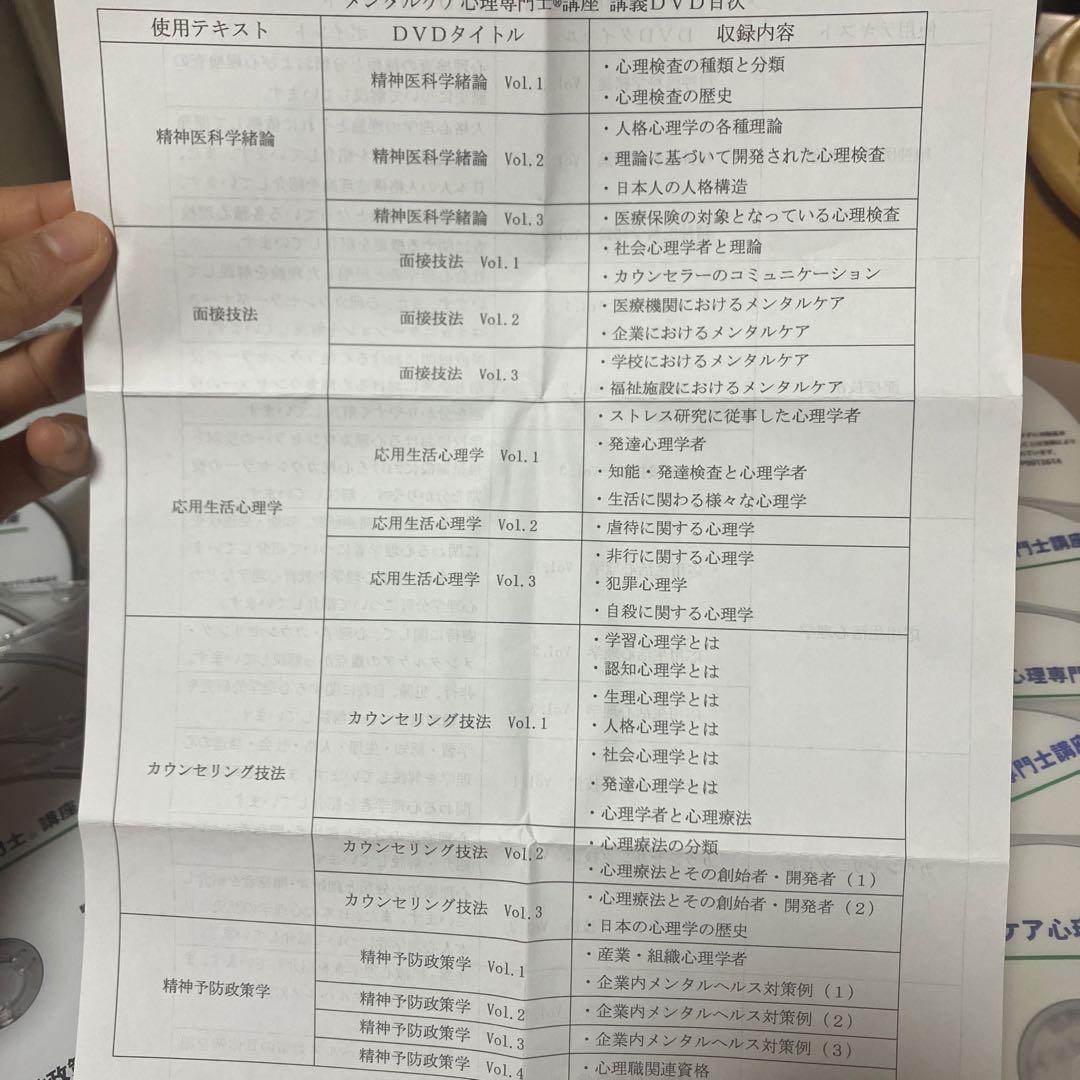 メンタルケア心理専門士®講座 講義DVD目次
使用テキスト DVDタイトル 収録内容
精神医科学緒論
精神医科学緒論 Vol.1
・心理検査の種類と分類
・心理検査の歴史
精神医科学緒論 Vol.2
・人格心理学の各種理論
・理論に基づいて開発された心理検査
・日本人の人格構造
精神医科学緒論 Vol.3
・医療保険の対象となっている心理検査
面接技法
面接技法 Vol.1
・社会心理学者と理論
・カウンセラーのコミュニケーション
面接技法 Vol.2
・医療機関におけるメンタルケア
・企業におけるメンタルケア
面接技法 Vol.3
・学校におけるメンタルケア
・福祉施設におけるメンタルケア
応用生活心理学
応用生活心理学 Vol.1
・ストレス研究に従事した心理学者
・発達心理学者
・知能・発達検査と心理学者
・生活に関わる様々な心理学
応用生活心理学 Vol.2
・虐待に関する心理学
応用生活心理学 Vol.3
・非行に関する心理学
・犯罪心理学
・自殺に関する心理学
カウンセリング技法
カウンセリング技法 Vol.1
・学習心理学とは
・認知心理学とは
・生理心理学とは
・人格心理学とは
・社会心理学とは
・発達心理学とは
・心理学者と心理療法
カウンセリング技法 Vol.2
・心理療法の分類
・心理療法とその創始者・開発者(1)
カウンセリング技法 Vol.3
・心理療法とその創始者・開発者(2)
・日本の心理学の歴史
精神予防政策学
精神予防政策学 Vol.1
・産業・組織心理学者
・企業内メンタルヘルス対策例(1)
精神予防政策学 Vol.2
・企業内メンタルヘルス対策例(2)
精神予防政策学 Vol.3
・企業内メンタルヘルス対策例(3)
精神予防政策学 Vol.4
・心理職関連資格
門士講座
心理専門
専門士講座
ケア心理
門士®講座